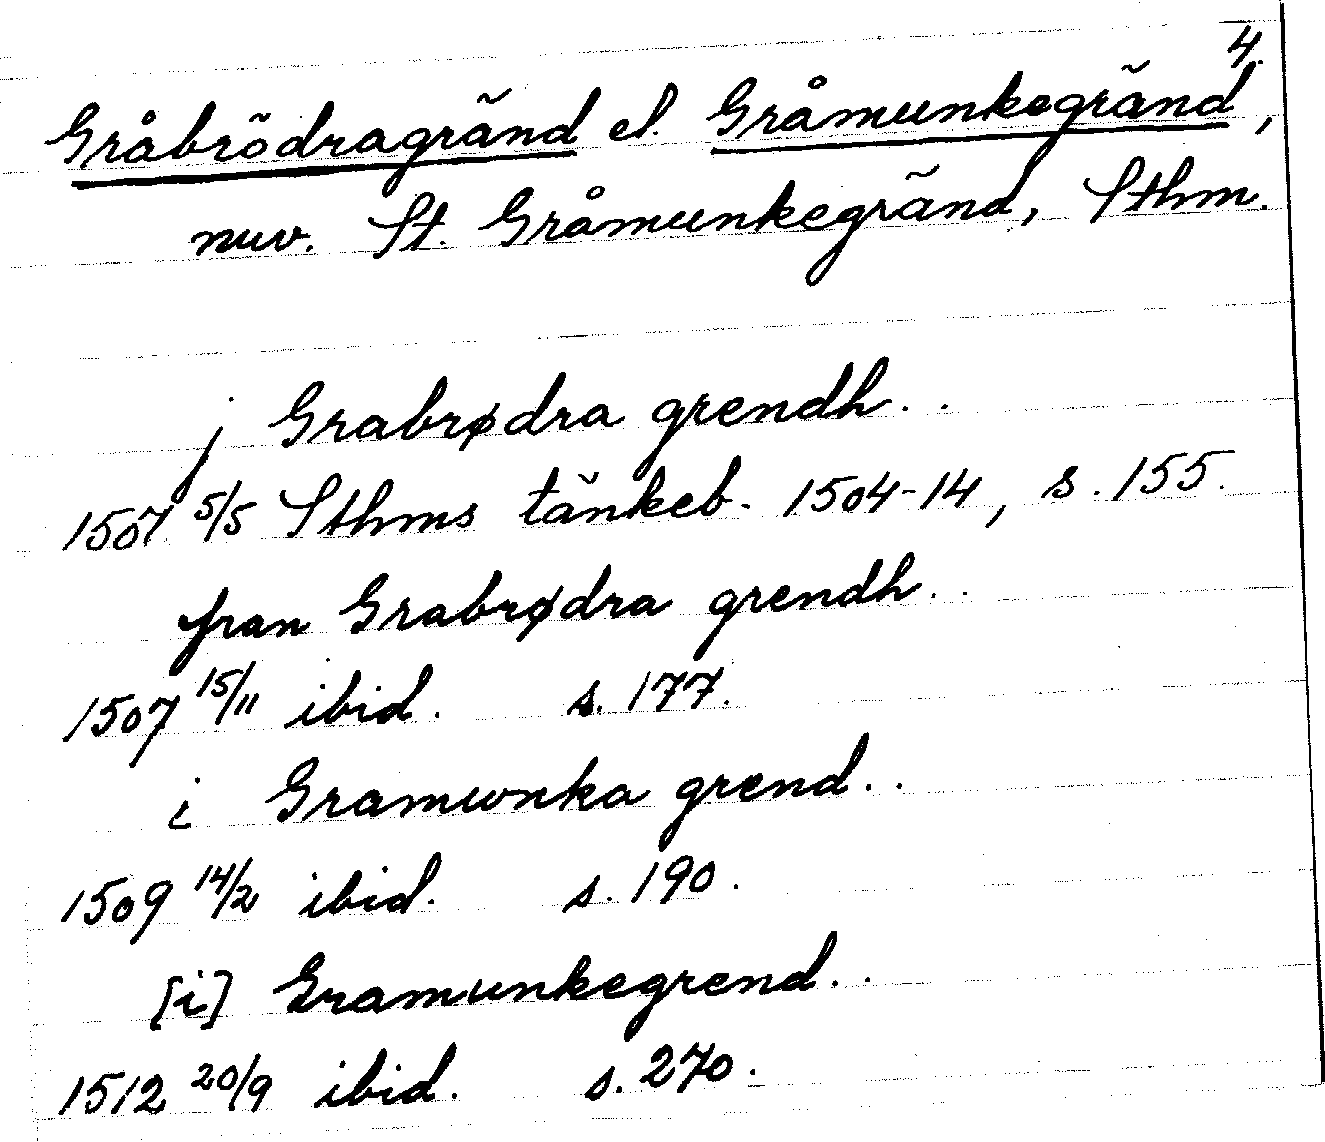 4.
Gråbrödragränd el. Gråmunkegränd,
nuv. St. Gråmunkegränd, Sthm.
j Grabrødra grendh..
1507 5/5 Sthms tänkeb. 1504-14, s. 155.
fran Grabrødra grendh..
1507 15/11 ibid. s. 177.
i Gramwnka grend..
1509 14/2 ibid. s. 190.
[i] Gramunkegrend..
1512 20/9 ibid. s. 270.